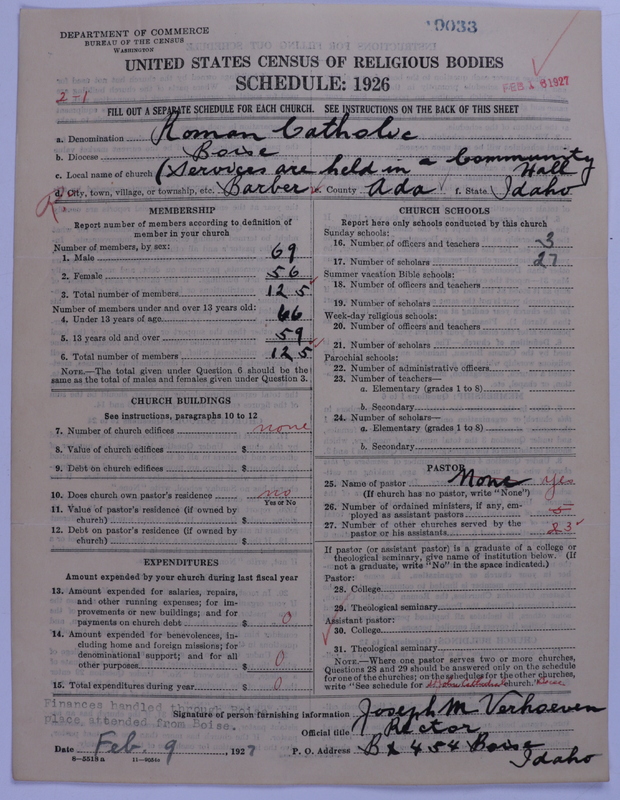 DEPARTMENT OF COMMERCE
BUREAU OF THE CENSUS
WASHINGTON
9033
UNITED STATES CENSUS OF RELIGIOUS BODIES
SCHEDULE: 1926
2-1
FEB 16 1927
FILL OUT A SEPARATE SCHEDULE FOR EACH CHURCH. SEE INSTRUCTIONS ON THE BACK OF THIS SHEET
a. Denomination Roman Catholic
b. Diocese Boise
c. Local name of church (Services are held in a Community Hall
d. City, town, village, or township, etc. Barber e. County Ada f. State Idaho
MEMBERSHIP
Report number of members according to definition of
member in your church
Number of members, by sex:
1. Male 69
2. Female 56
3. Total number of members 125
Number of members under and over 13 years old:
4. Under 13 years of age 66
5. 13 years old and over 59
6. Total number of members 125
NOTE.—The total given under Question 6 should be the
same as the total of males and females given under Question 3.
CHURCH BUILDINGS
See instructions, paragraphs 10 to 12
7. Number of church edifices none
8. Value of church edifices $
9. Debt on church edifices $
10. Does church own pastor's residence no
Yes or No
11. Value of pastor's residence (if owned by
church) $
12. Debt on pastor's residence (if owned by
church) $
EXPENDITURES
Amount expended by your church during last fiscal year
13. Amount expended for salaries, repairs,
and other running expenses; for im-
provements or new buildings; and for
payments on church debt $ 0
14. Amount expended for benevolences, in-
cluding home and foreign missions; for
denominational support; and for all
other purposes $ 0
15. Total expenditures during year $ 0
CHURCH SCHOOLS
Report here only schools conducted by this church
Sunday schools:
16. Number of officers and teachers 3
17. Number of scholars 27
Summer vacation Bible schools:
18. Number of officers and teachers
19. Number of scholars
Week-day religious schools:
20. Number of officers and teachers
21. Number of scholars
Parochial schools:
22. Number of administrative officers
23. Number of teachers—
a. Elementary (grades 1 to 8)
b. Secondary
24. Number of scholars—
a. Elementary (grades 1 to 8)
b. Secondary
PASTOR
25. Name of pastor None yes
(If church has no pastor, write "None")
26. Number of ordained ministers, if any, em-
ployed as assistant pastors 5
27. Number of other churches served by the
pastor or his assistants 23
If pastor (or assistant pastor) is a graduate of a college or
theological seminary, give name of institution below. (If
not a graduate, write "No" in the space indicated.)
Pastor:
28. College
29. Theological seminary
Assistant pastor:
30. College
31. Theological seminary
NOTE.—Where one pastor serves two or more churches,
Questions 28 and 29 should be answered only on the schedule
for one of the churches; on the schedules for the other churches,
write "See schedule for St John Cathedral church." Boise
Finances handled through Boise
place attended from Boise.
Signature of person furnishing information Joseph M Verhoeven
Official title Rector
Date Feb. 9, 1927 P. O. Address Bx 454 Boise Idaho
8—5518 a 11—9651a